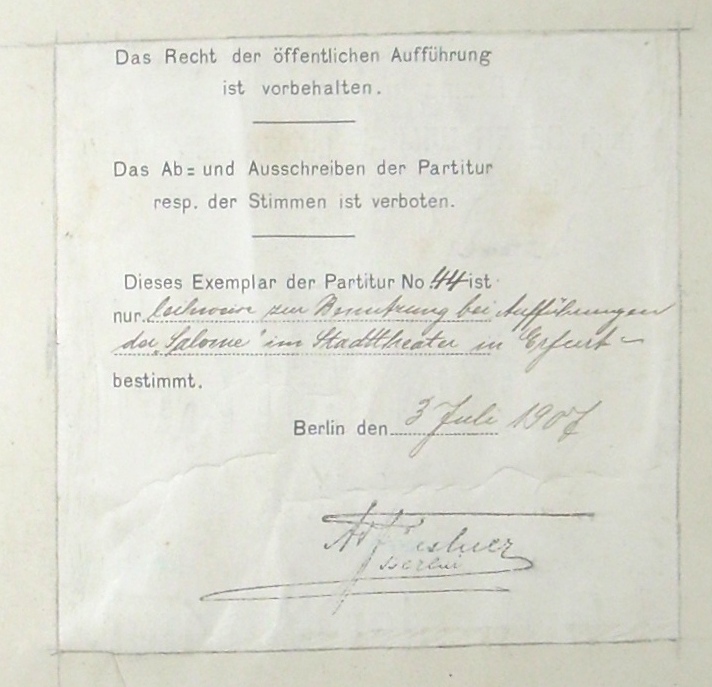 Das Recht der öffentlichen Aufführung
ist vorbehalten.
Das Ab= und Ausschreiben der Partitur
resp. der Stimmen ist verboten.
Dieses Exemplar der Partitur No. 44 ist
nur leihweise zur Benutzung bei Aufführungen
der „Salome" im Stadttheater in Erfurt –
bestimmt.
Berlin den 3 Juli 1907
Ad Fürstner
Berlin